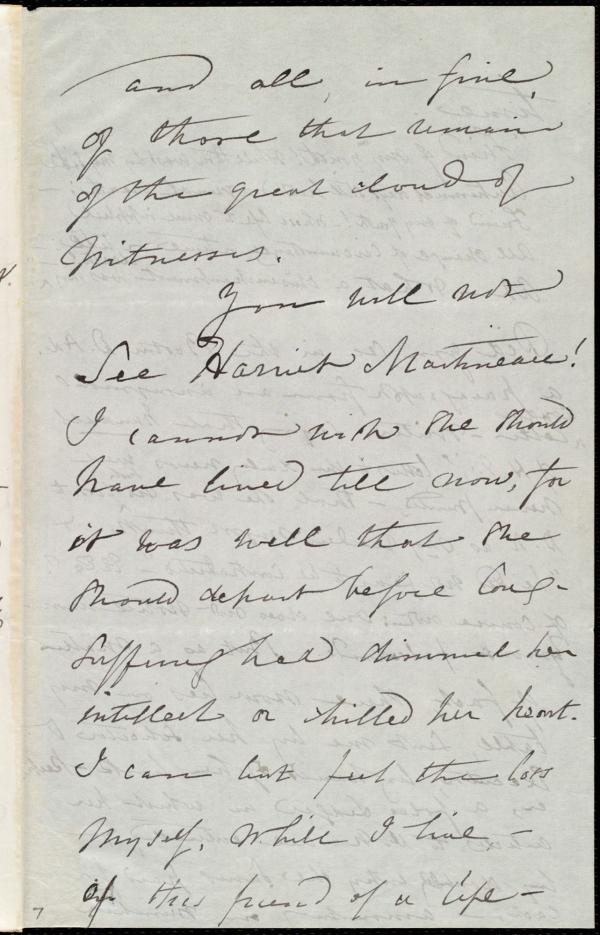 and all, in fine,
of those that remain
of the great cloud of
Witnesses.
You will not
See Harriet Martineau!
I cannot wish she should
have lived till now, for
it was well that she
should depart before long-
suffering had dimmed her
intellect or chilled her heart.
I can but feel the loss
myself, while I live —
of this friend of a life-